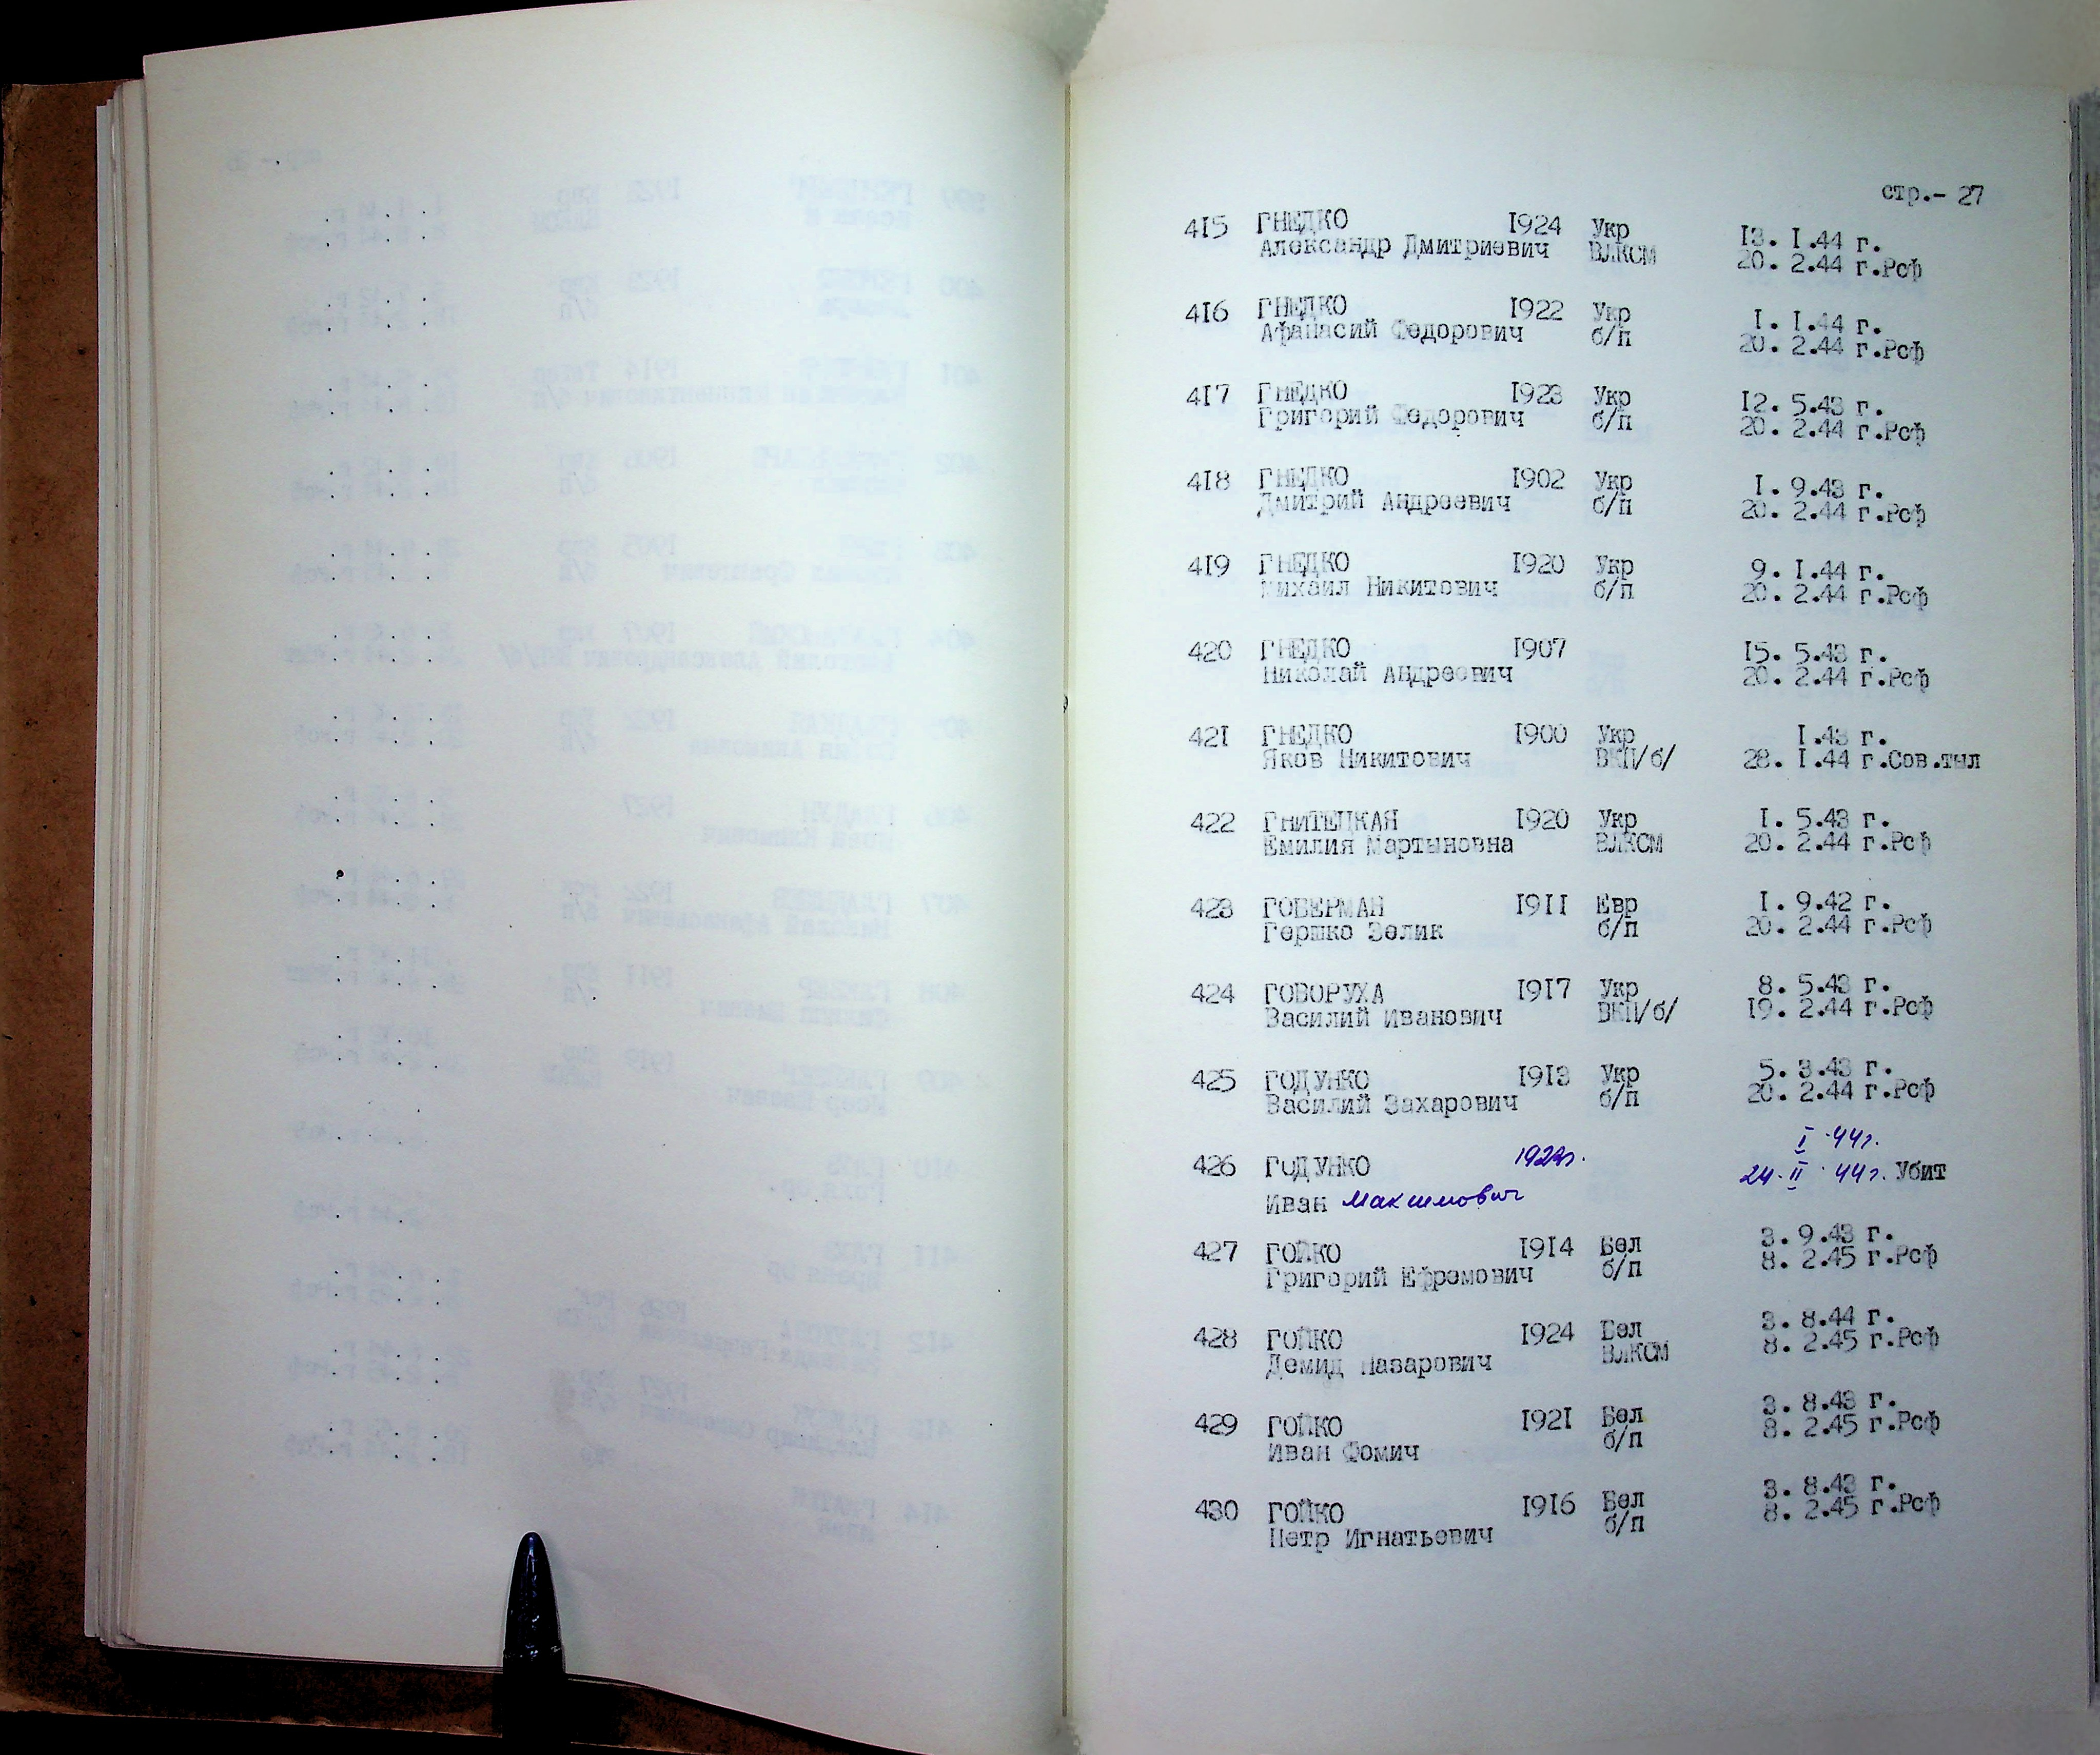 стр.- 27
415 ГНЕДКО 1924 Укр 13. 1.44 г.
Александр Дмитриевич ВЛКСМ 20. 2.44 г.Рсф
416 ГНЕДКО 1922 Укр 1. 1.44 г.
Афанасий Федорович б/п 20. 2.44 г.Рсф
417 ГНЕДКО 1923 Укр 12. 5.43 г.
Григорий Федорович б/п 20. 2.44 г.Рсф
418 ГНЕДКО 1902 Укр 1. 9.43 г.
Дмитрий Андреевич б/п 20. 2.44 г.Рсф
419 ГНЕДКО 1920 Укр 9. 1.44 г.
Михаил Никитович б/п 20. 2.44 г.Рсф
420 ГНЕДКО 1907 15. 5.43 г.
Николай Андреевич 20. 2.44 г.Рсф
421 ГНЕДКО 1900 Укр 1.43 г.
Яков Никитович ВКП/б/ 28. 1.44 г.Сов.тыл
422 ГНИТЕЦКАЯ 1920 Укр 1. 5.43 г.
Емилия Мартыновна ВЛКСМ 20. 2.44 г.Рсф
423 ГОБЕРМАН 1911 Евр 1. 9.42 г.
Гершко Зелик б/п 20. 2.44 г.Рсф
424 ГОВОРУХА 1917 Укр 8. 5.43 г.
Василий Иванович ВКП/б/ 19. 2.44 г.Рсф
425 ГОДУНКО 1913 Укр 5. 3.43 г.
Василий Захарович б/п 20. 2.44 г.Рсф
426 ГОДУНКО I·44г.
Иван Максимович 24·II·44г. Убит
427 ГОЙКО 1914 Бел 3. 9.43 г.
Григорий Ефремович б/п 8. 2.45 г.Рсф
428 ГОЙКО 1924 Бел 3. 8.44 г.
Демид Назарович ВЛКСМ 8. 2.45 г.Рсф
429 ГОЙКО 1921 Бел 3. 8.43 г.
Иван Фомич б/п 8. 2.45 г.Рсф
430 ГОЙКО 1916 Бел 3. 8.43 г.
Петр Игнатьевич б/п 8. 2.45 г.Рсф